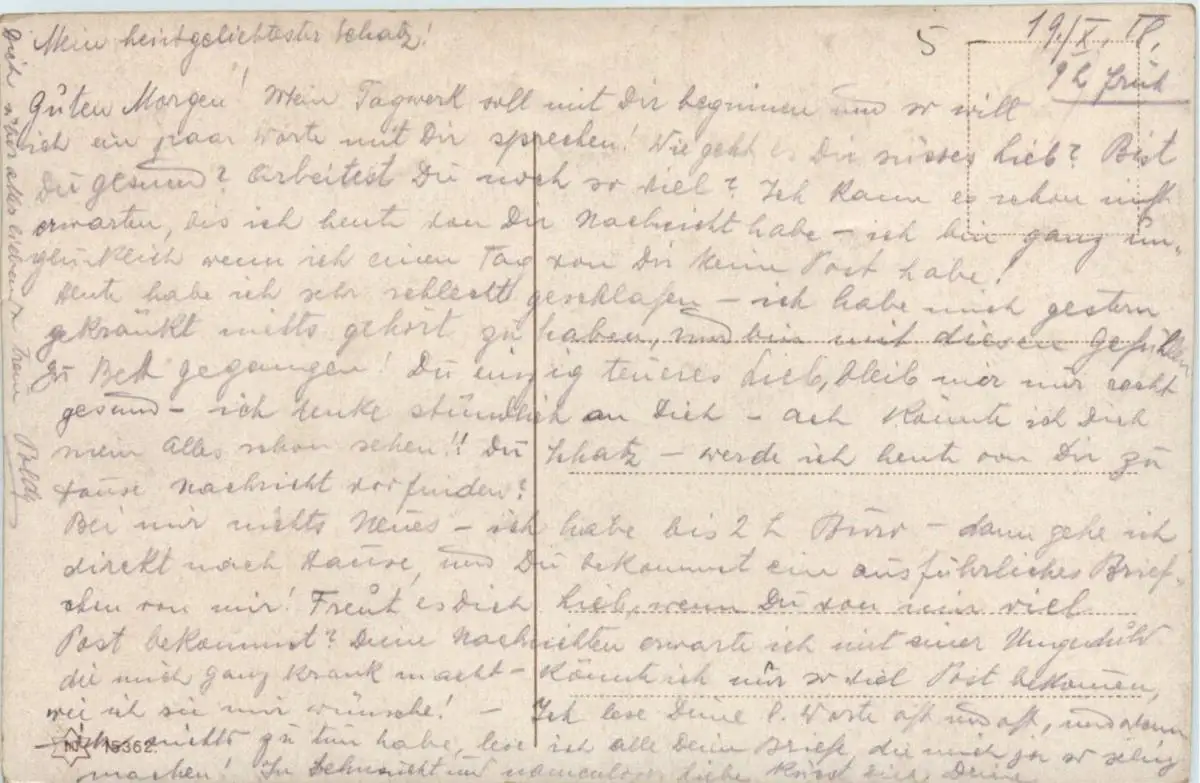 5 - 19./X. 18.
9 h früh
Mein heissgeliebtester Schatz!
Guten Morgen! Mein Tagwerk soll mit Dir beginnen und so will
ich ein paar Worte mit Dir sprechen! Wie geht es Dir süsses Lieb? Bist
Du gesund? Arbeitest Du noch so viel? Ich kann es schon nicht
erwarten, bis ich heute von Dir Nachricht habe - ich bin ganz un-
glücklich wenn ich einen Tag von Dir keine Post habe!
Heute habe ich sehr schlecht geschlafen - ich habe mich gestern
gekränkt nichts gehört zu haben, und bin mit diesen Gefühlen
zu Bett gegangen! Du einzig teueres Lieb, bleib mir nur recht
gesund - ich denke stündlich an Dich - ach könnte ich Dich
mein Alles schon sehen!! Du Schatz - werde ich heute von Dir zu
Hause Nachricht vorfinden?
Bei mir nichts Neues - ich habe bis 2 h Büro - dann gehe ich
direkt nach Hause, und Du bekommst ein ausführliches Brief-
chen von mir! Freut es Dich Lieb, wenn Du von mir viel
Post bekommst? Deine Nachrichten erwarte ich mit einer Ungeduld
die mich ganz krank macht - könnte ich nur so viel Post bekommen,
wie ich sie mir wünsche! - Ich lese Deine l. Worte oft und oft, und wenn
ich nichts zu tun habe, lese ich alle Deine Briefe, die mich ja so selig
machen! In Sehnsucht und namenloser Liebe küsst Dich Deine
Dich über alles liebende treue
NJ 15362